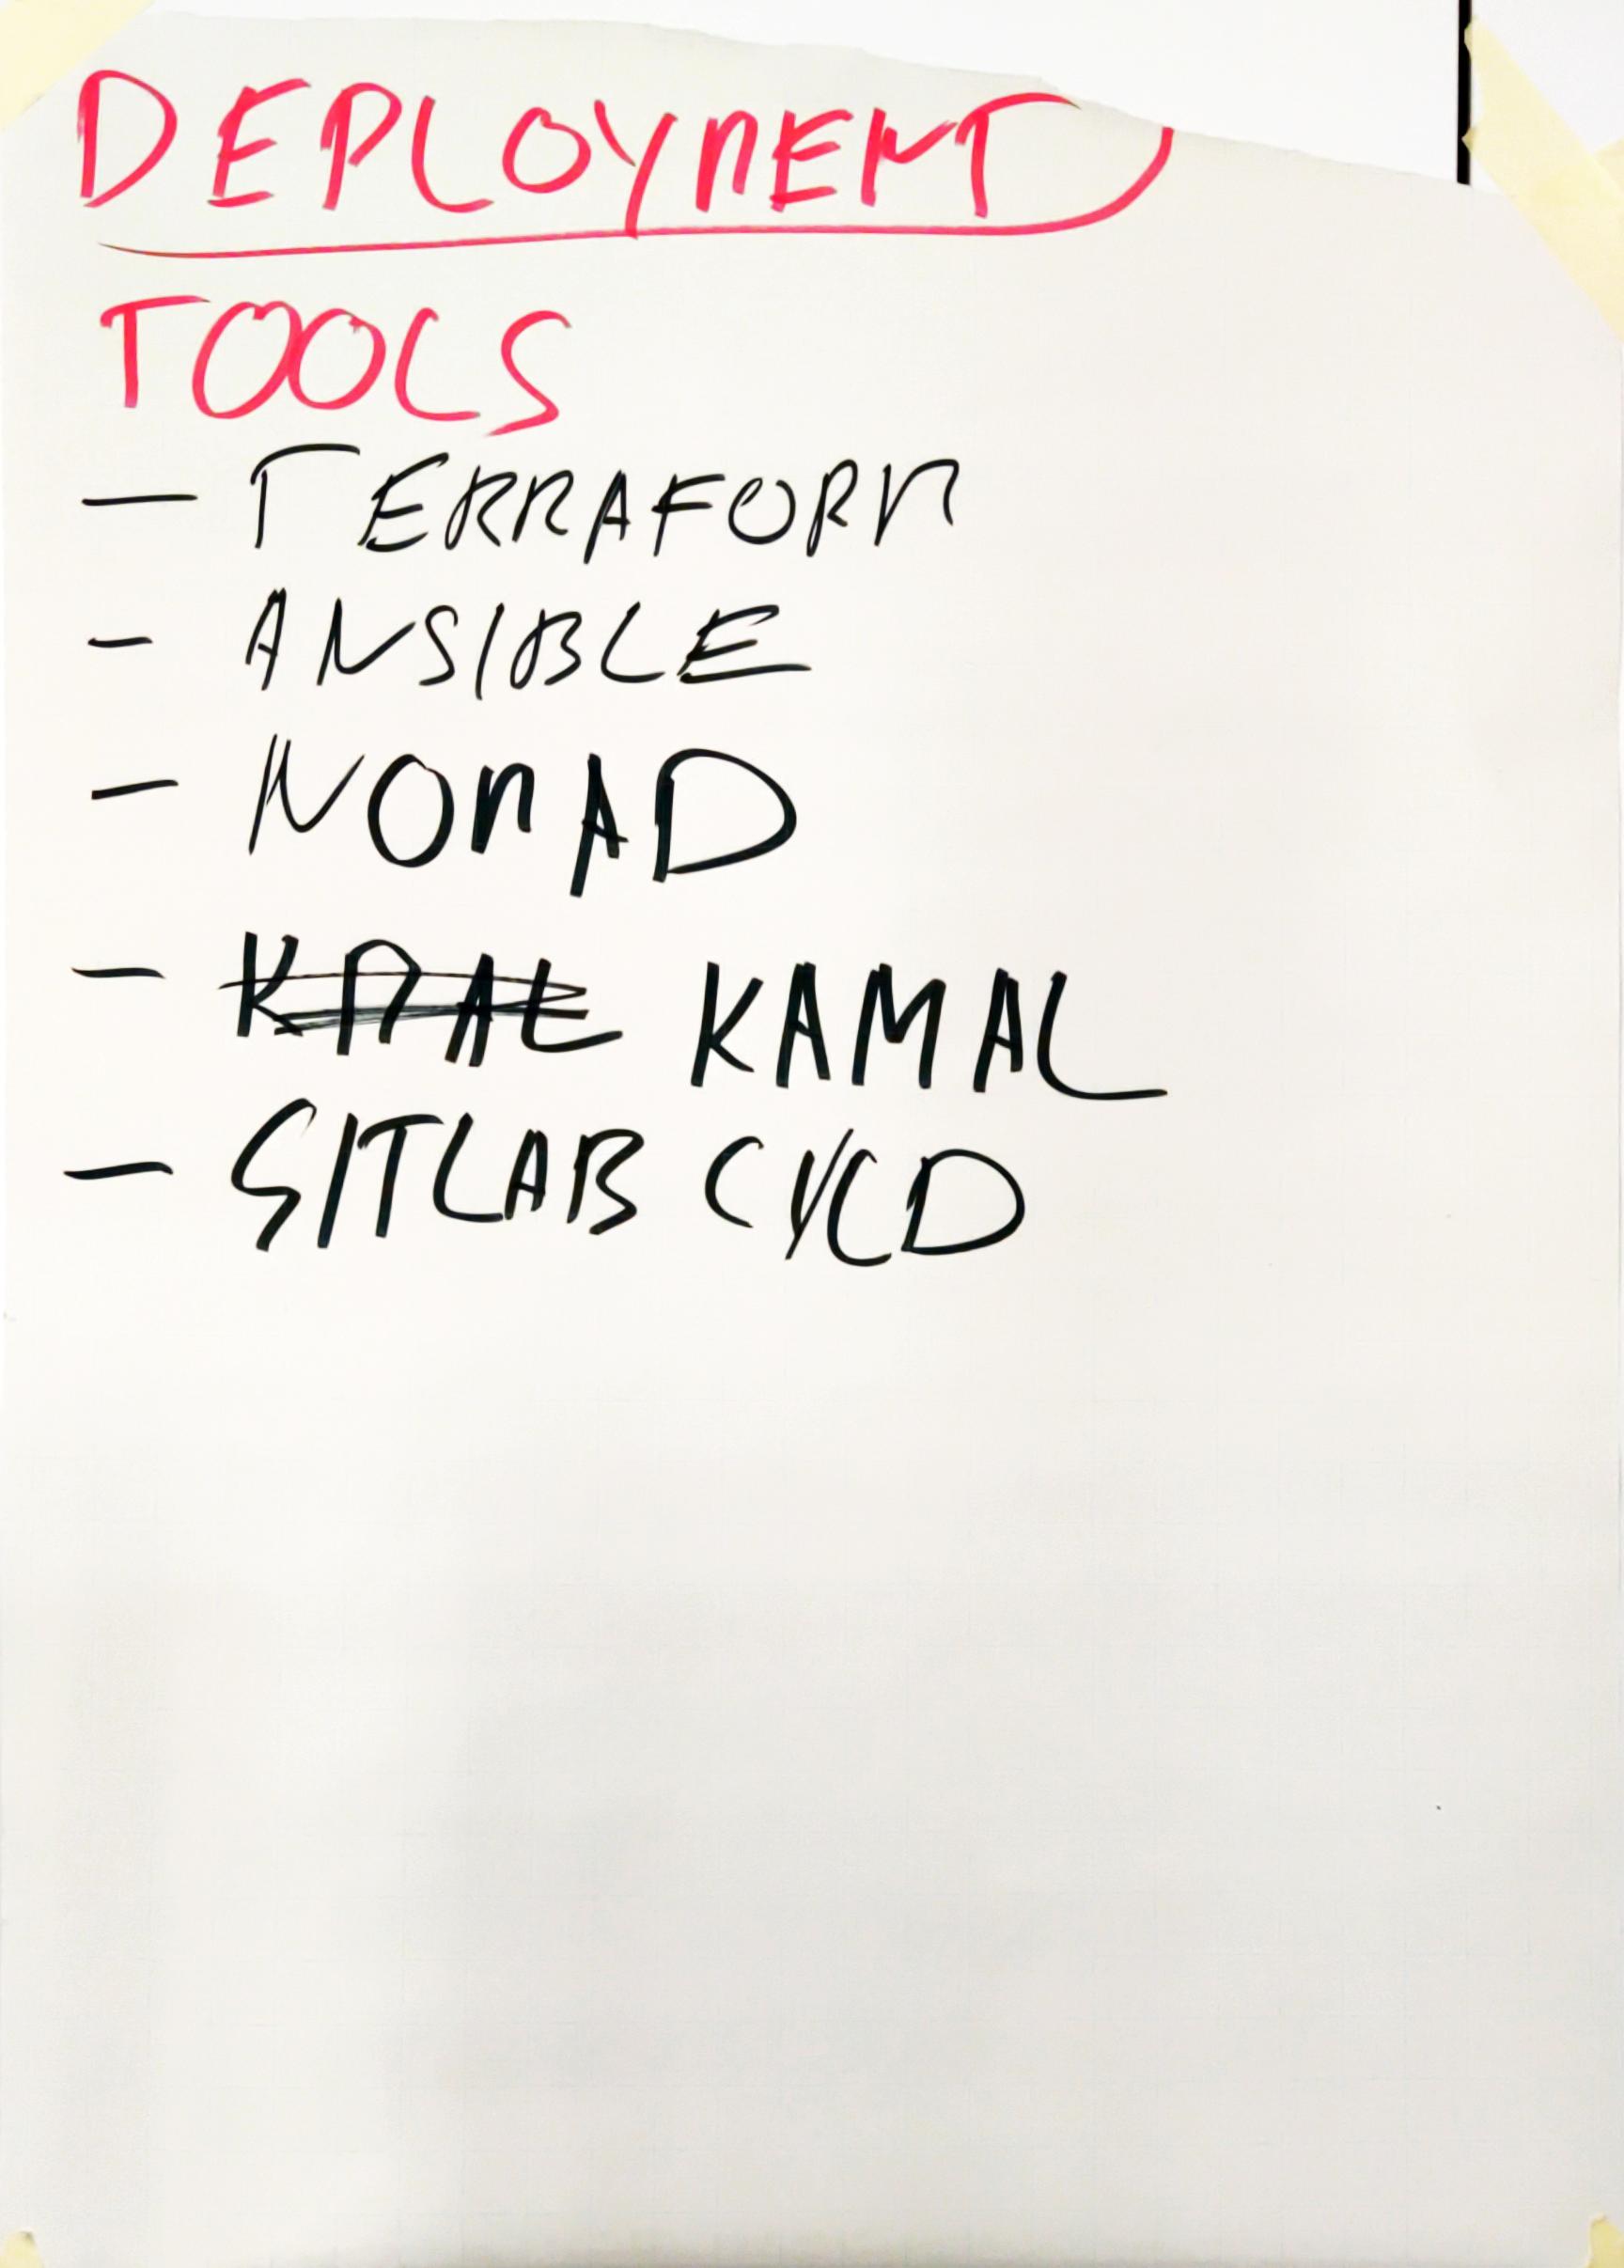 DEPLOYMENT
TOOLS
- TERRAFORM
- ANSIBLE
- NOMAD
- KAMAL
- GITLAB CI/CD